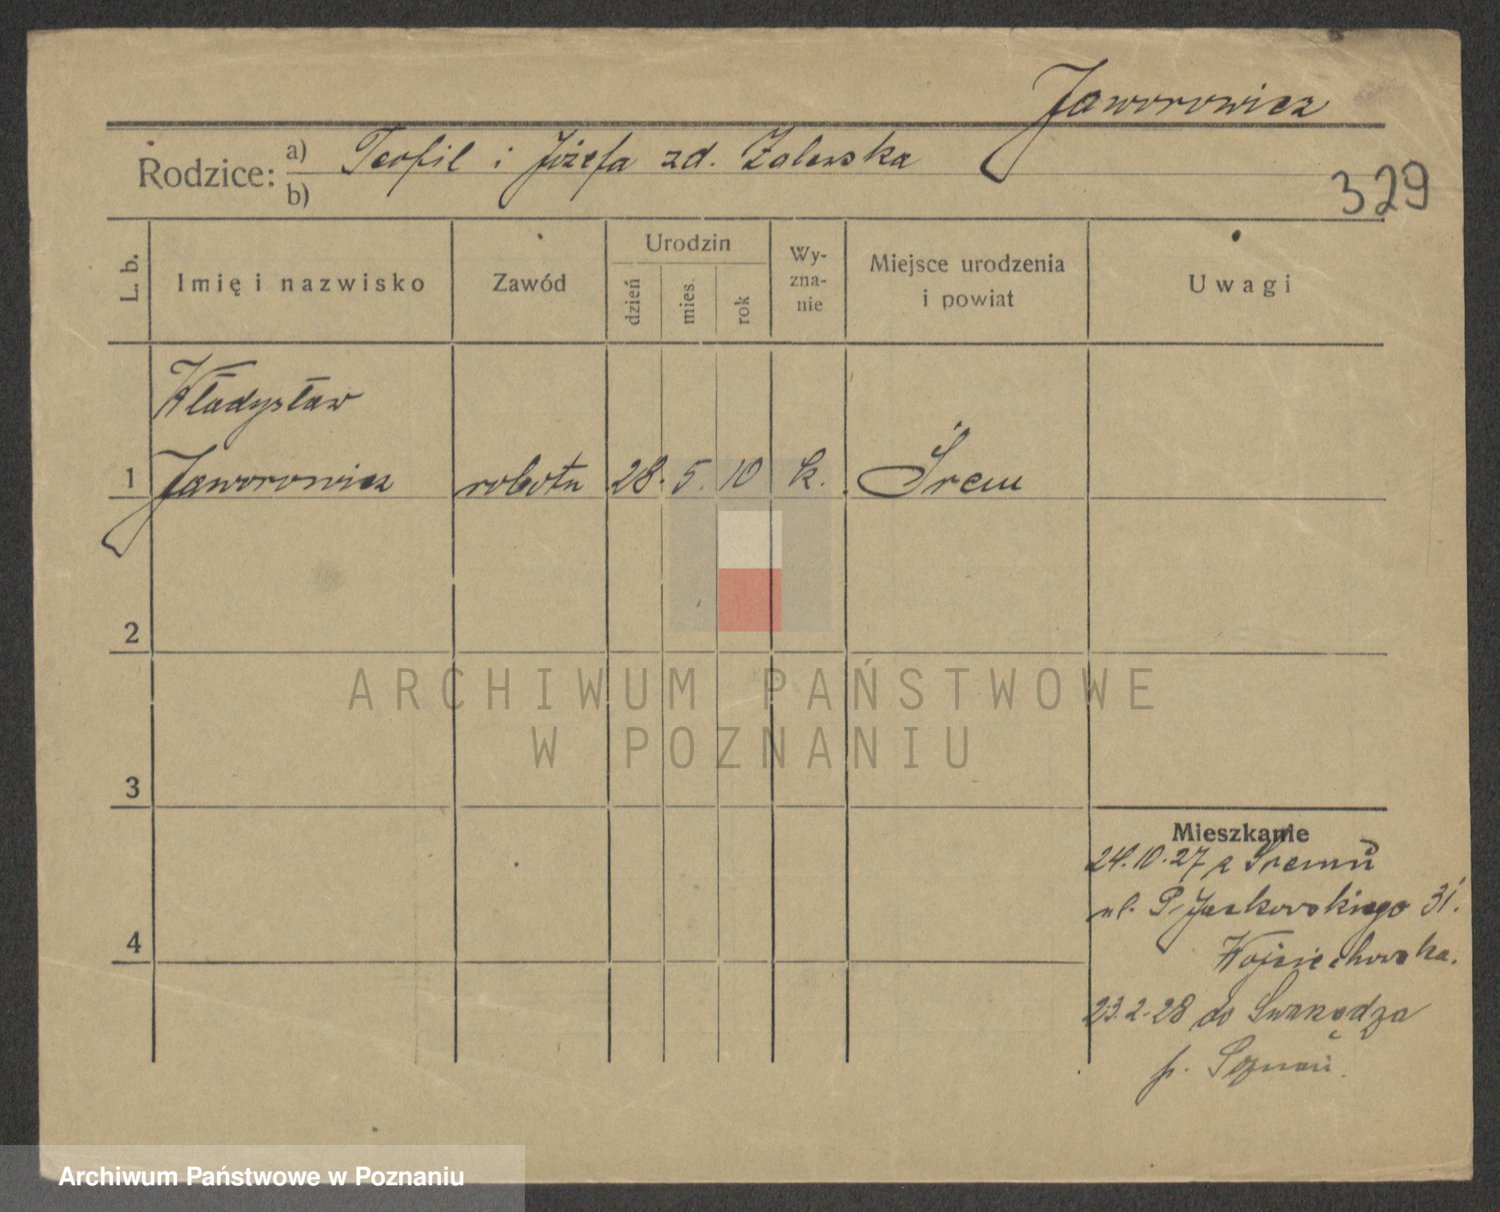 Jaworowicz
Rodzice: a) Teofil i Józefa zd. Zalewska
b)
329
L. b.
Imię i nazwisko
Zawód
Urodzin
dzień
mies.
rok
Wy-
zna-
nie
Miejsce urodzenia
i powiat
Uwagi
Władysław
1 Jaworowicz robotn 28. 5. 10 k. Śrem
2
3
4
ARCHIWUM PAŃSTWOWE
W POZNANIU
Mieszkanie
24.10.27 z Śremu
ul. P. Jackowskiego 31.
Wojciechowska.
23.2.28 do Swarzędza
p. Poznań.
Archiwum Państwowe w Poznaniu